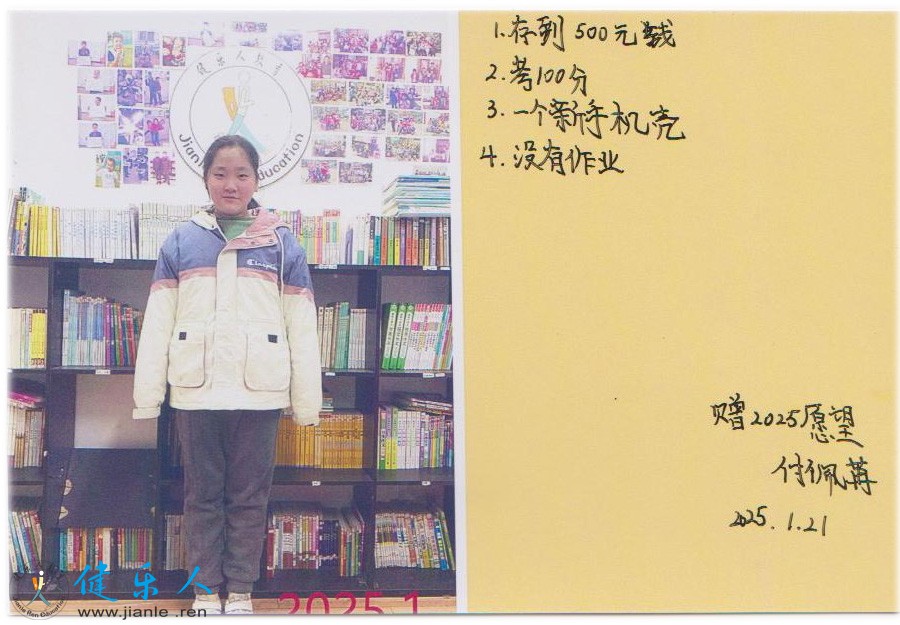 健乐人教育
Jianle Ren Education
Champion
1.存到500元钱
2.考100分
3.一个新手机壳
4.没有作业
赠2025愿望
付佩苒
2025.1.21
2025.1
健乐人
www.jianle.ren